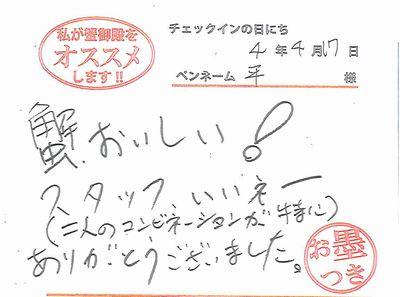 私が蟹御殿を
オススメ
します!!
チェックインの日にち
4年4月17日
ペンネーム 平 様
蟹、おいしい!
スタッフ、いいネー
(二人のコンビネーションが特に)
ありがとうございました。
お墨
つき